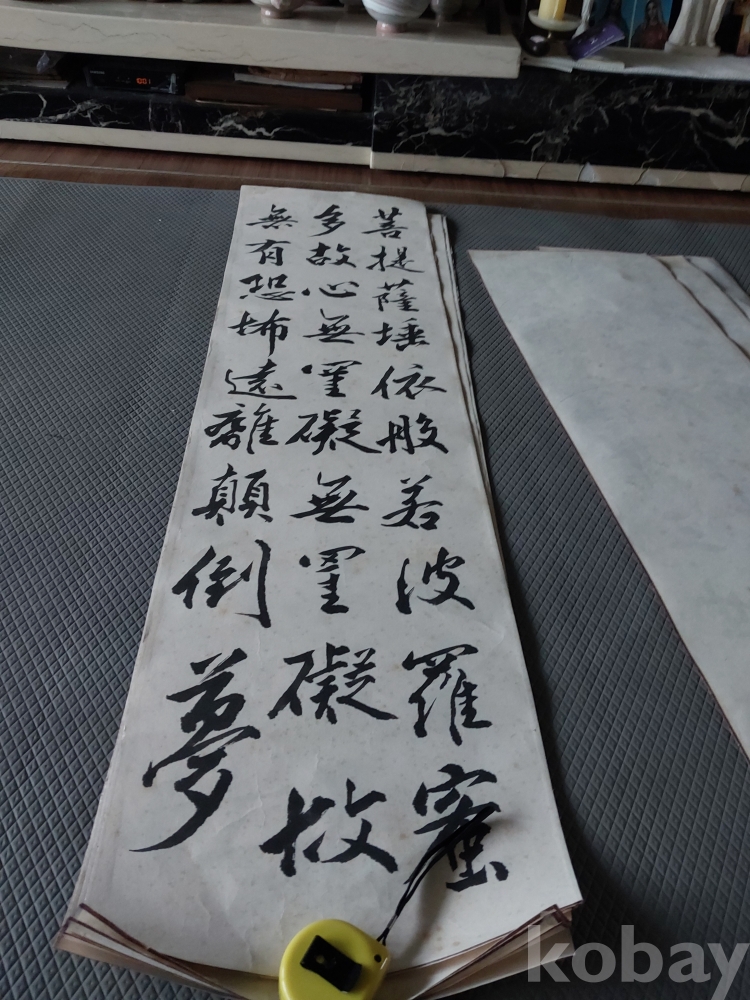 菩提薩埵依般若波羅蜜
多故心無罣礙無罣礙故
無有恐怖遠離顛倒夢
kobay